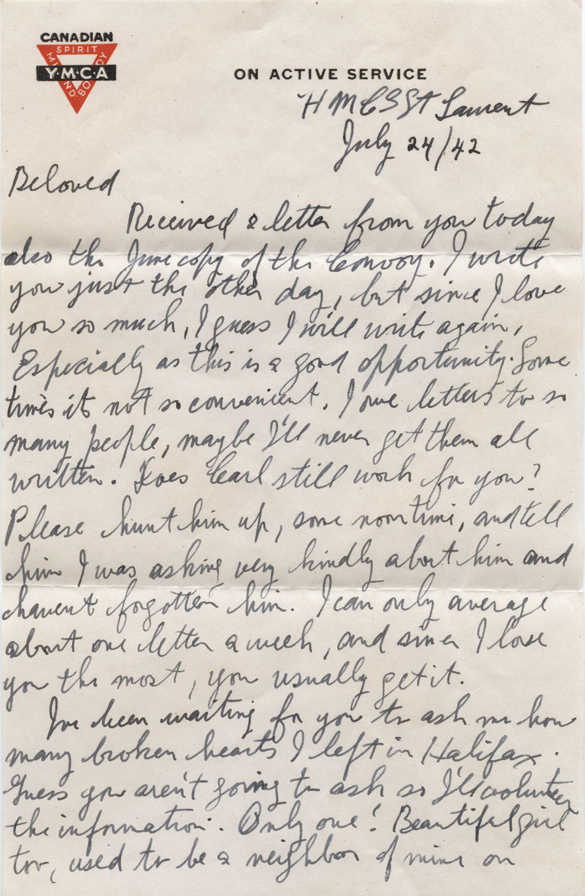 CANADIAN
SPIRIT
MIND
Y·M·C·A
BODY
ON ACTIVE SERVICE
HMCS St Laurent
July 24/42
Beloved
Received a letter from you today
also the June copy of the Convoy. I write
you just the other day, but since I love
you so much, I guess I will write again,
Especially as this is a good opportunity. Some
times its not so convenient. I owe letters to so
many people, maybe I'll never get them all
written. Does Carl still work for you?
Please hunt him up, some noontime, and tell
him I was asking very kindly about him and
havent forgotten him. I can only average
about one letter a week, and since I love
you the most, you usually get it.
I've been waiting for you to ask me how
many broken hearts I left in Halifax.
Guess you aren't going to ask so I'll volunteer
the information. Only one! Beautiful girl
too, used to be a neighbor of mine on